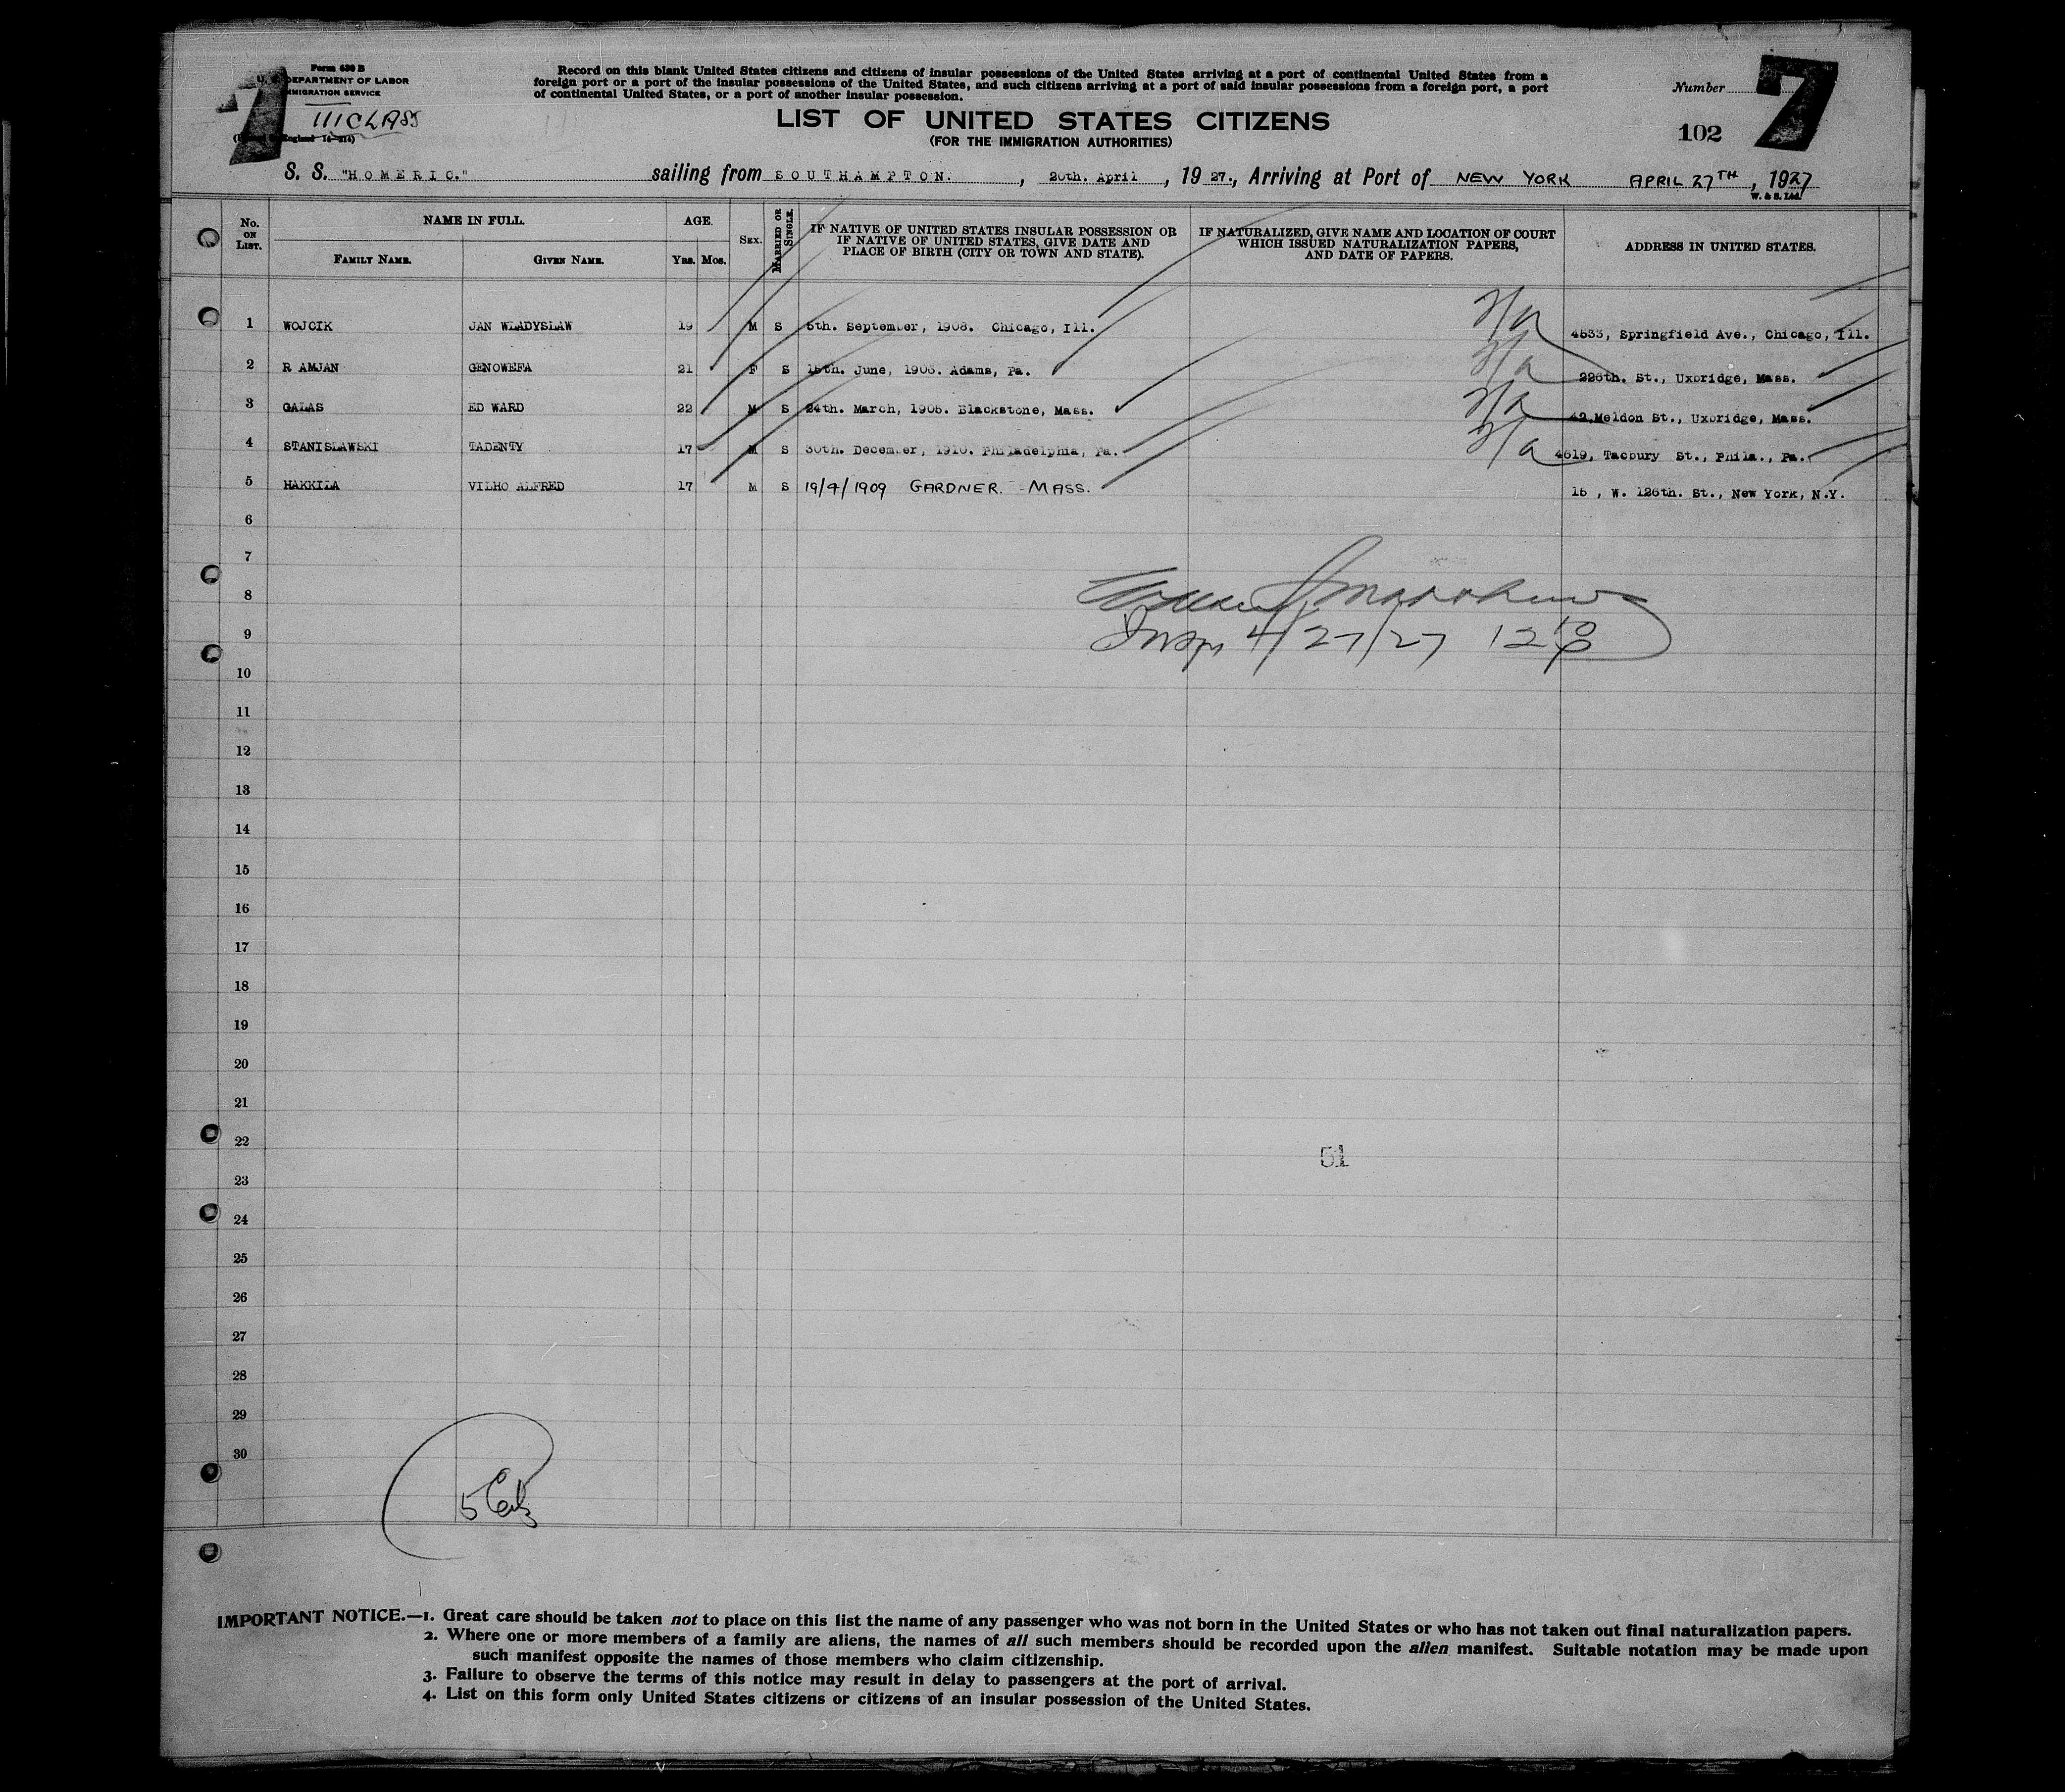 Form 630 B
U. S. DEPARTMENT OF LABOR
IMMIGRATION SERVICE
III CLASS
England 14—214)
7
Record on this blank United States citizens and citizens of insular possessions of the United States arriving at a port of continental United States from a
foreign port or a port of the insular possessions of the United States, and such citizens arriving at a port of said insular possessions from a foreign port, a port
of continental United States, or a port of another insular possession.
LIST OF UNITED STATES CITIZENS
(FOR THE IMMIGRATION AUTHORITIES)
Number
7
102
S. S. "HOMERIC." sailing from SOUTHAMPTON. , 20th. April , 19 27., Arriving at Port of NEW YORK APRIL 27TH , 1927
W. & S. Ltd.
No. ON LIST. NAME IN FULL. AGE. SEX. MARRIED OR SINGLE. IF NATIVE OF UNITED STATES INSULAR POSSESSION OR IF NATIVE OF UNITED STATES, GIVE DATE AND PLACE OF BIRTH (CITY OR TOWN AND STATE). IF NATURALIZED, GIVE NAME AND LOCATION OF COURT WHICH ISSUED NATURALIZATION PAPERS, AND DATE OF PAPERS. ADDRESS IN UNITED STATES.
FAMILY NAME. GIVEN NAME. YRS. MOS.
1 WOJCIK JAN WLADYSLAW 19 M S 5th. September, 1908. Chicago, Ill. 4533, Springfield Ave., Chicago, Ill.
2 R AMJAN GENOWEFA 21 F S 15th. June, 1906. Adams, Pa. 226th. St., Uxbridge, Mass.
3 GALAS ED WARD 22 M S 24th. March, 1905. Blackstone, Mass. 42, Meldon St., Uxbridge, Mass.
4 STANISLAWSKI TADENTY 17 M S 30th. December, 1910. Philadelphia, Pa. 4619, Tacbury St., Phila., Pa.
5 HAKKILA VILHO ALFRED 17 M S 19/4/1909 GARDNER. MASS. 15 , W. 126th. St., New York, N.Y.
6
7
8
9
Insp 4/27/27 12
10
11
12
13
14
15
16
17
18
19
20
21
22
51
23
24
25
26
27
28
29
30
5
IMPORTANT NOTICE.—1. Great care should be taken not to place on this list the name of any passenger who was not born in the United States or who has not taken out final naturalization papers.
2. Where one or more members of a family are aliens, the names of all such members should be recorded upon the alien manifest. Suitable notation may be made upon
such manifest opposite the names of those members who claim citizenship.
3. Failure to observe the terms of this notice may result in delay to passengers at the port of arrival.
4. List on this form only United States citizens or citizens of an insular possession of the United States.